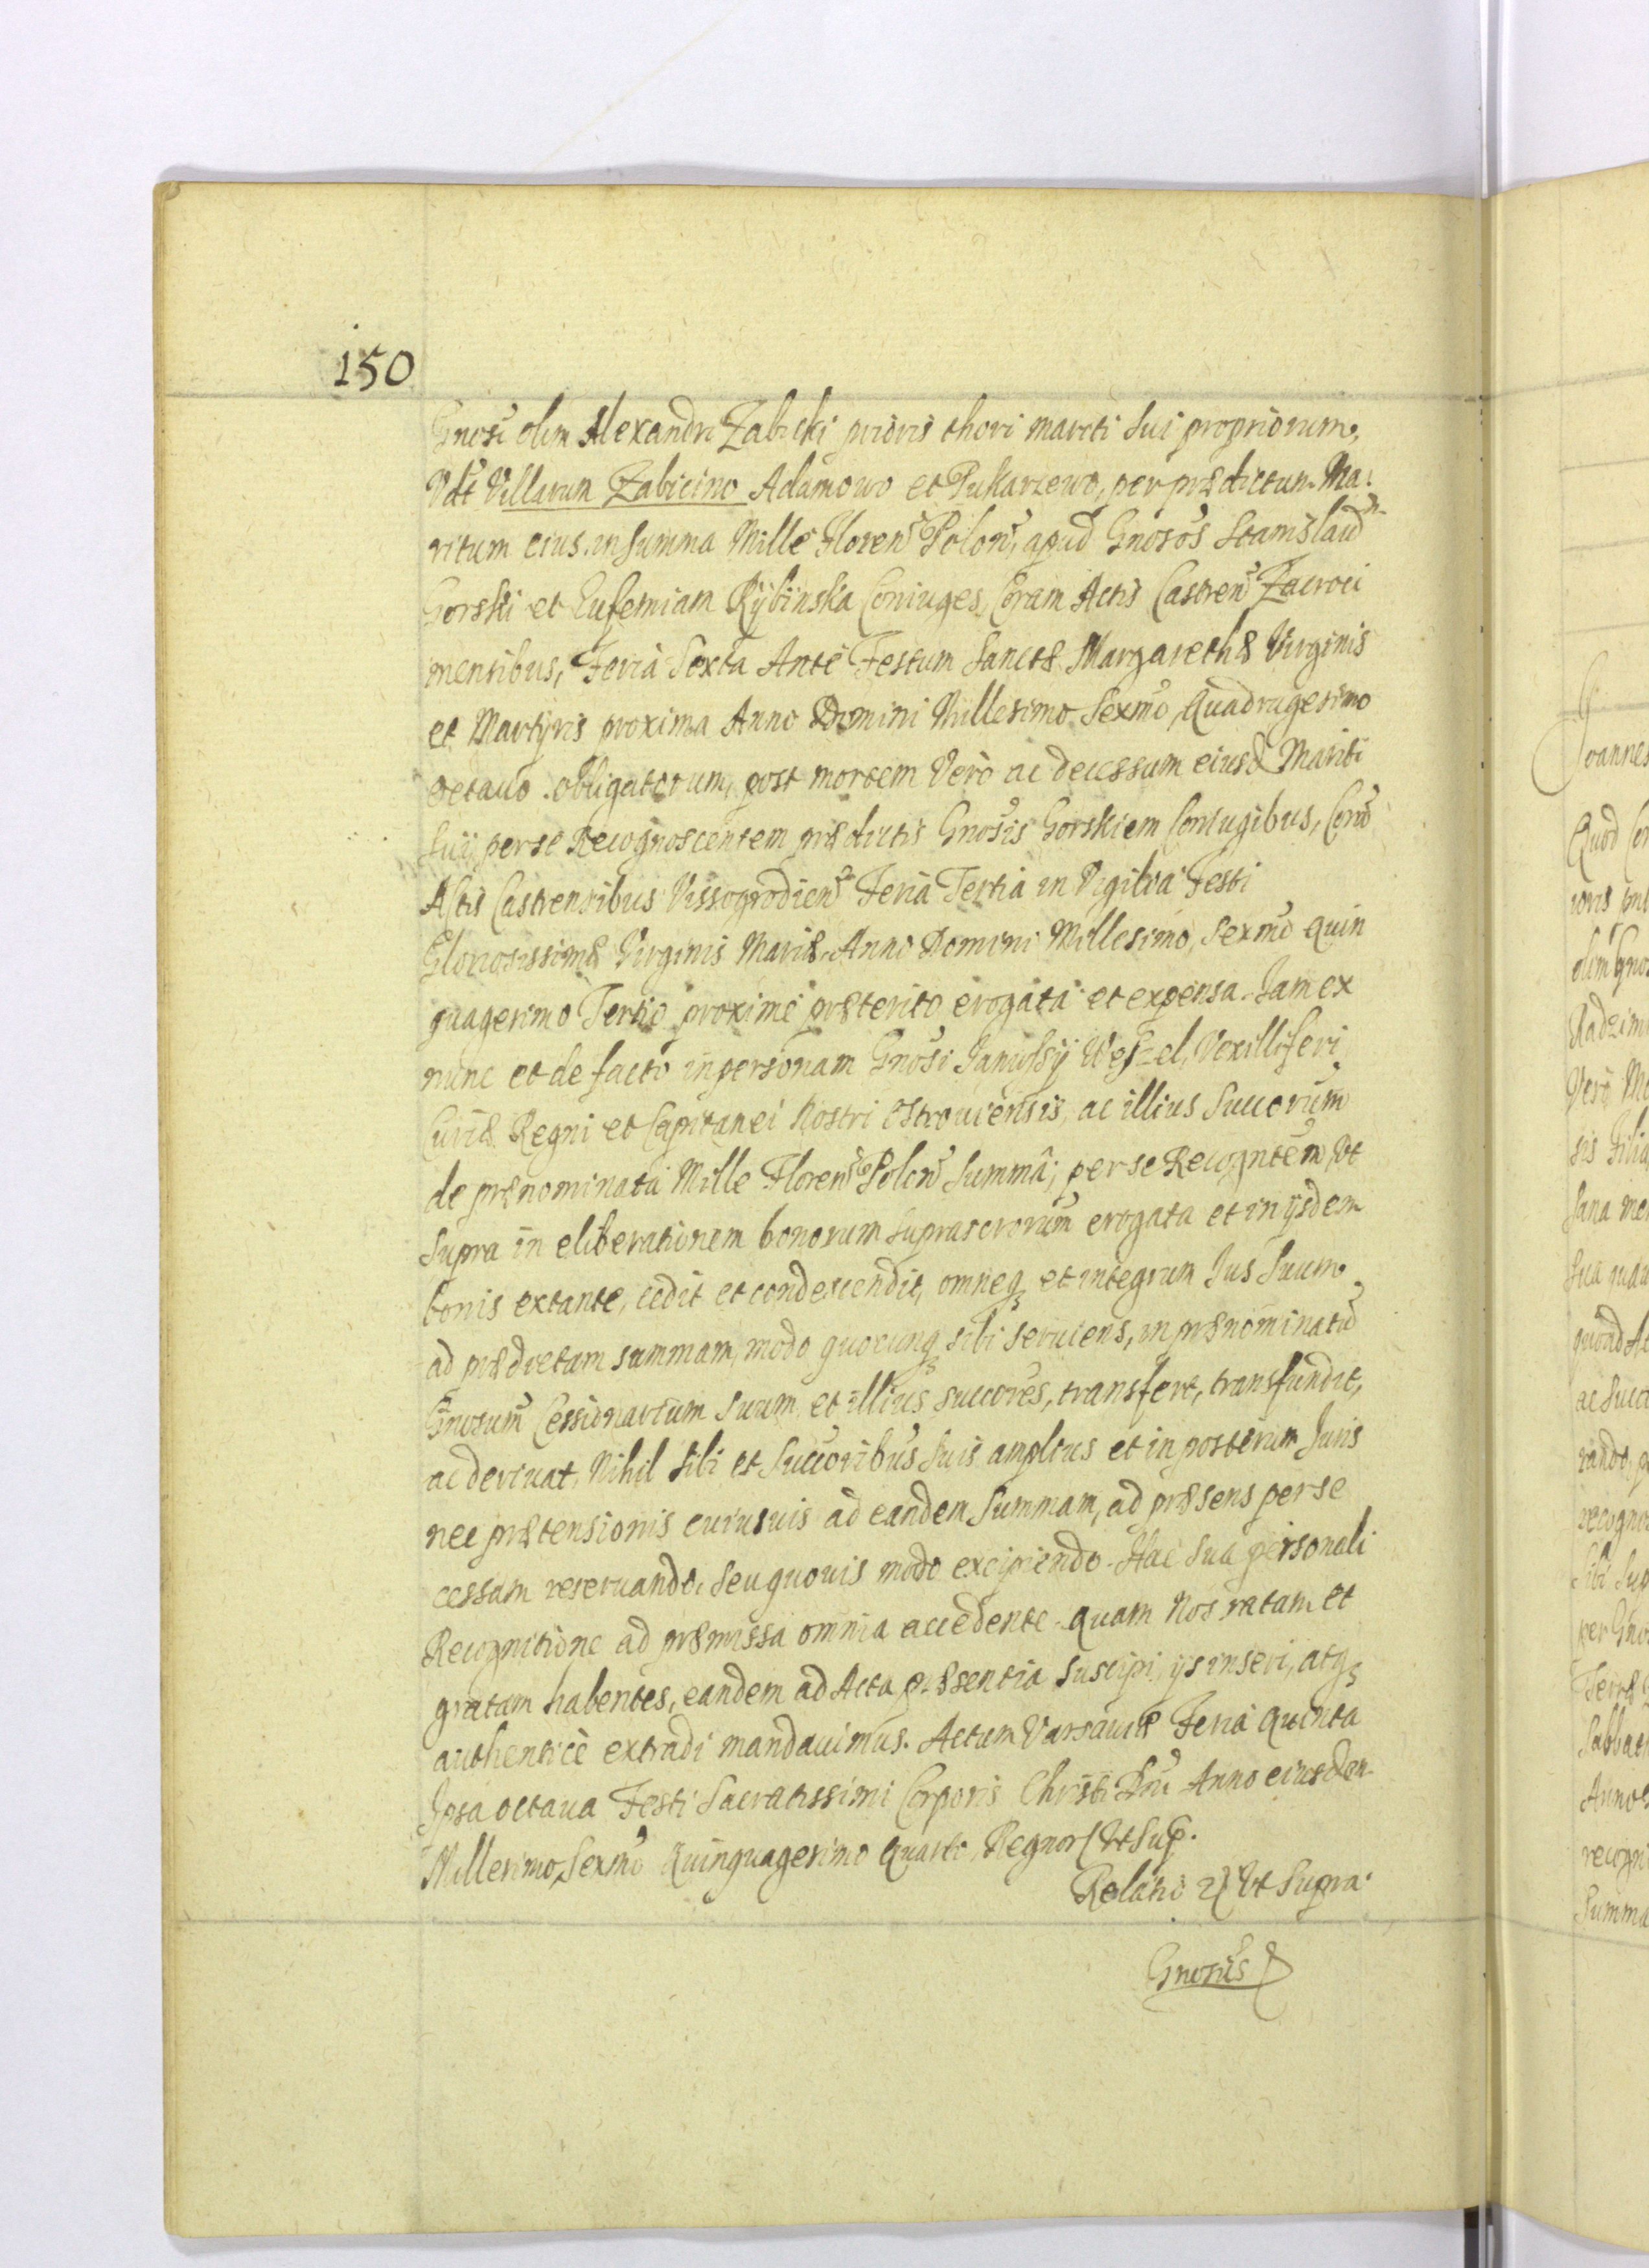 150
Gnosi olim Alexandri Zabicki prioris thori mariti sui propriorum,
Vdt Villarum Zabicino Adamowo et Pukarzewo, per prædictum Ma-
ritum eius in summa Mille Floren Polon, apud Gnosos Stanislaum
Gorski et Eufemiam Rÿbinska Coniuges, Coram Actis Castren Zacroci
mensibus, Feria Sexta Ante Festum Sanctæ Margarethæ Virginis
et Martyris proxima Anno Domini Millesimo Sexmo Quadragesimo
octauo obligatorum, post mortem Vero ac decessum eiusd Mariti
sui, per se Recognoscentem prædictis Gnosis Gorskiem Coniugibus, Corã
Actis Castrensibus Vissogrodien Feria Tertia in Vigilia Festi
Gloriosissimæ Virginis Mariæ Anno Domini Millesimo, Sexmo Quin
quagesimo Tertio proximè præterito erogata et expensa. Iam ex
nunc et de facto in personam Gnosi Janussÿ Wessel, Vexilliferi
Curiæ Regni et Capitanei Nostri Ostrouiensis, ac illius Succorum
de prænominata Mille Floren Polon summâ, per se Recogntem, Vt
supra in eliberationem bonorum suprascrorum erogata et in ijsdem
bonis extante, cedit et condescendit, omneq et integrum Ius suum
ad prædictam summam, modo quocunq sibi seruiens, in prænominatũ
Gnosum Cessionarium suum et illius succores, transfert, transfundit,
ac deriuat, Nihil sibi et Succoribus suis amplius et in posterum Juris
nec prætensionis cuiusuis ad eandem Summam, ad præsens per se
cessam reseruando, seu quouis modo excipiendo. Hac sua personali
Recognitione ad præmissa omnia accedente. Quam Nos ratam et
gratam habentes, eandem ad Acta præsentia suscipi, ijs inseri, atq
authenticè extradi mandauimus. Actum Varsauiæ Feria Quinta
Ipsa octaua Festi Sacratissimi Corporis Christi Dni Anno eiusdem
Millesimo, Sexmo Quinquagesimo Quarto, Regnor Vt Sup.
Relatio Vt Supra.
Gnosus